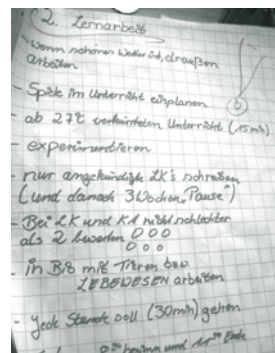 2. Lernarbeit
- wenn schönes Wetter ist, draußen
arbeiten
- Spiele im Unterricht einplanen
- ab 27°C verkürzten Unterricht (15min)
- experimentieren
- nur angekündigte LK's schreiben
(und danach 3 Wochen „Pause")
- Bei LK und KA nicht schlechter
als 2 bewerten
- in Bio mit Tieren bzw.
LEBEWESEN arbeiten
- jede Stunde voll (30min) gehen
beginn und Ende